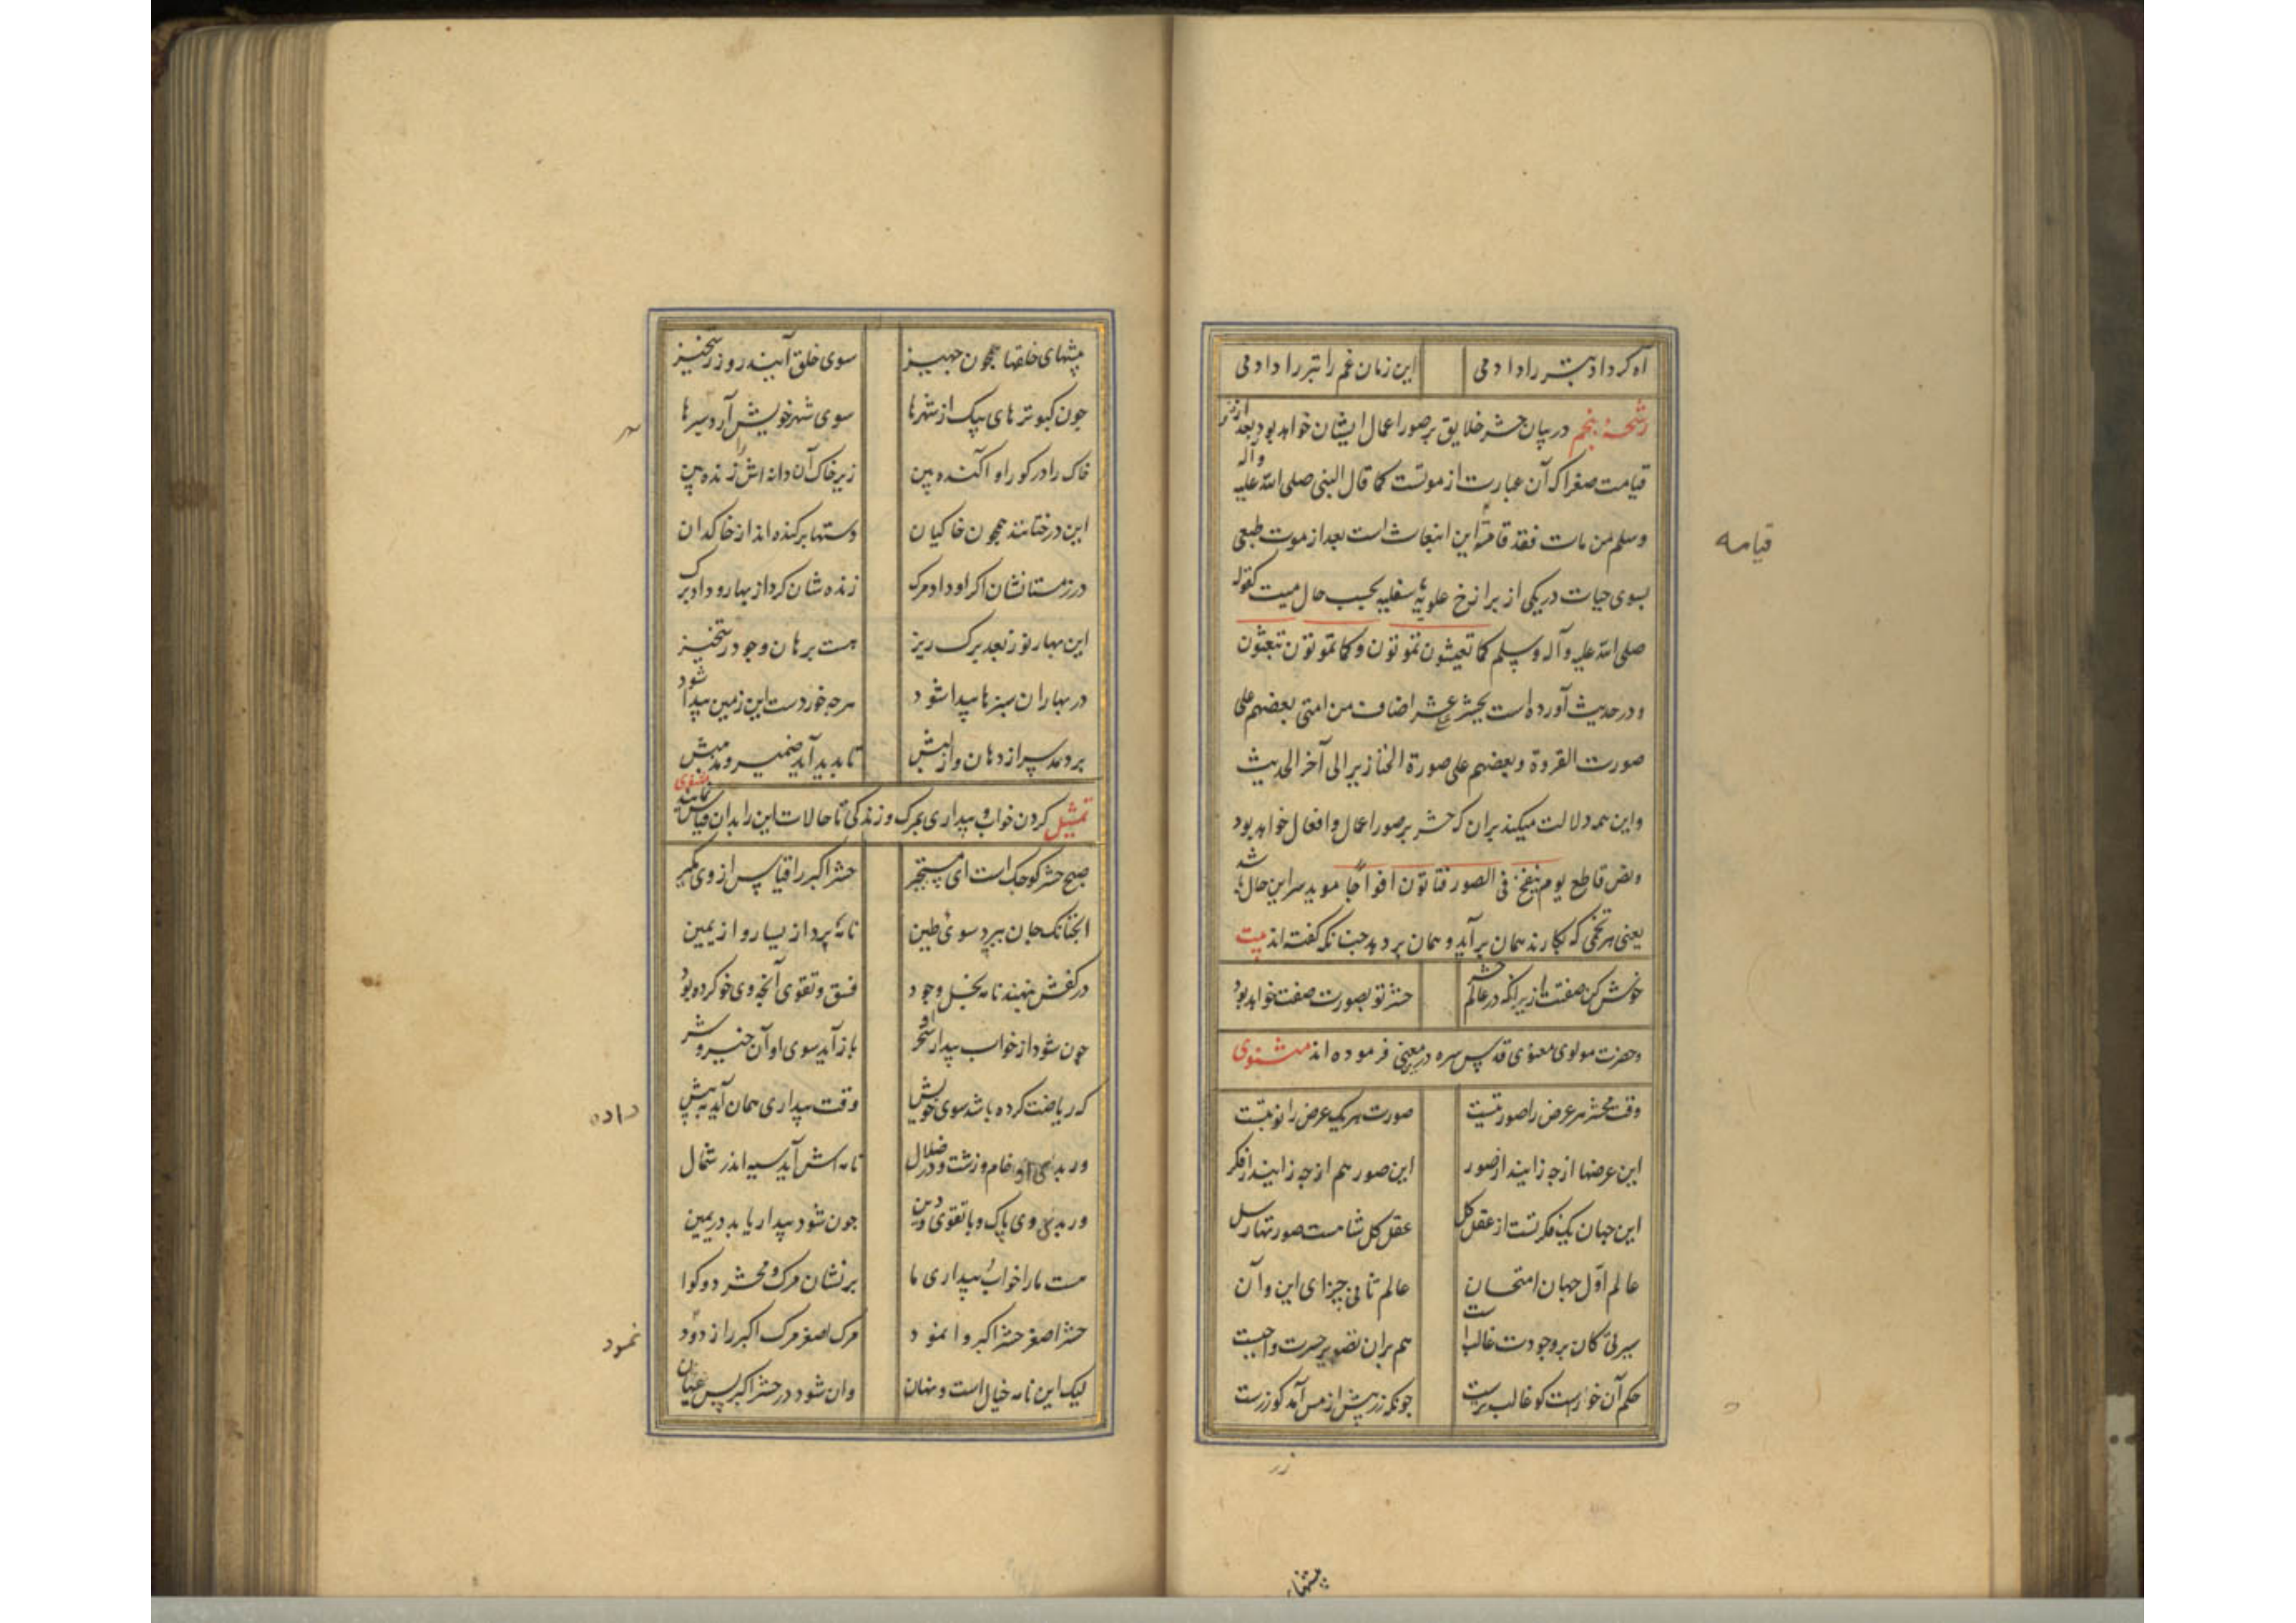 آه کر داد بشر را دادمی این زمان غم را تبرا دادمی
رشحهٔ پنجم در بیان حشر خلایق بر صور اعمال ایشان خواهد بود بعد از
قیامت صغرا که آن عبارت از موتست کما قال النبی صلی الله علیه وآله
وسلم من مات فقد قامته این انبعاث است بعد از موت طبعی
بسوی حیات در یکی از برازخ علویه یا سفلیه بحسب حال میت کقوله
صلی الله علیه وآله وسلم کما تعیشون تموتون وکما تموتون تبعثون
ودر حدیث آورده است یحشر عشر اضاف من امتی بعضهم علی
صورت القردة وبعضهم علی صورة الخنازیر الی آخر الحدیث
واین همه دلالت میکند بران که حشر بر صور اعمال وافعال خواهد بود
ونص قاطع یوم ینفخ فی الصور فتاتون افواجا موید سر این حال باشد
یعنی هر تخمی که بکارند همان برآید و همان بر دهد چنانکه گفته اند بیت
خوش کن صفتت ازیرانکه در عالم حشر حشر تو بصورت صفت خواهد بود
وحضرت مولوی معنوی قدس سره درین معنی فرموده اند مثنوی
وقت محشر هر عرض را صورتیست صورت هر یک عرض را نوبتست
این عرضها از چه زایند از صور این صور هم از چه زایند از فکر
این جهان یک فکرتست از عقل کل عقل کل شاهست صورتها رسل
عالم اول جهان امتحان عالم ثانی جزای این و آن
سیرتی کان بر وجودت غالبست هم بران تصویر حسرت واجبست
حکم آن خوراست کو غالب ترست چونکه زر پیش از مس آمد کو زرست
زر
پیشهاء
قیامه
پیشهای خلقها همچون جهیز سوی خلق آیند روز رستخیز
چون کبوترهای پیک از شهرها سوی شهر خویش آرد سرها
خاک را در کور او آکنده بین زیر خاک آن دانه اش را زنده بین
این درختانند همچون خاکیان دستها برکنده اند از خاکدان
در زمستانشان اکر او داد مرک زنده شان کرد از بهار و داد برک
این بهار نو ز بعد برک ریز هست برهان وجود رستخیز
در بهاران سبزها پیدا شود هرچه خوردست این زمین پیدا شود
بر دمد سر از دهان واز لبش تا بدید آید ضمیر و مذهبش
تمثیل کردن خواب و بیداری بمرک و زندکی تا حالات این را بدان قیاس نمایند مثنوی
صبح حشر کوچک است ای مستجر حشر اکبر را قیاس از وی بگیر
انچنانک جان بپرد سوی طین نامه پرد از یسار و از یمین
در کفش بنهند نامه بخل وجود فسق و تقوی آنچه وی خو کرده بود
چون شود از خواب بیدار او سحر باز آید سوی او آن خیر و شر
کر ریاضت کرده باشد سوی خویش وقت بیداری همان آید به پیش
ور بدی او خام و زشت و در ضلال نامه اش آید سیه اندر شمال
ور بدی وی پاک و با تقوی و دین چون شود بیدار یابد در یمین
هست ما را خواب و بیداری ما بر نشان مرک و محشر دو کوا
حشر اصغر حشر اکبر وا نمود مرک اصغر مرک اکبر را زدود
لیک این نامه خیال است و نهان وان شود در حشر اکبر بس عیان
داده
نمود